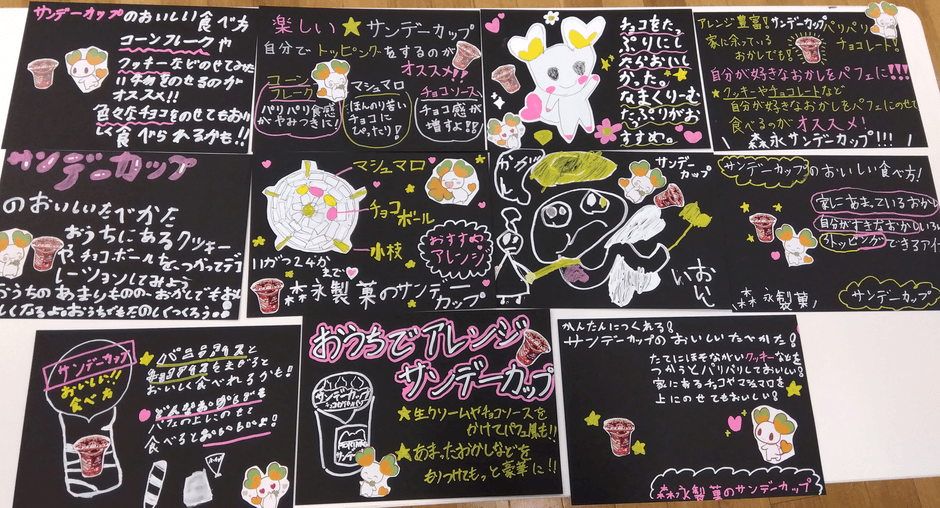 サンデーカップのおいしい食べ方
コーンフレークや
クッキーなどのせてみた
オススメ!!
色々なチョコをのせてもおい
しく食べられるかも!!
楽しい★サンデーカップ
自分でトッピングをするのが
オススメ!!
コーン
フレーク
パリパリ食感
がやみつきに!
マシュマロ
ほんのり苦い
チョコに
ぴったり!
チョコソース
チョコ感が
増すよ!!
チョコをたっ
ぷりにし
たらおいし
かった。
なまくりーむ
たっぷりがお
すすめ。
アレンジ豊富!サンデーカップ
パリパリ
チョコレート!
家に余っている
おかしでも!
自分が好きなおかしをパフェに!!!
★クッキーやチョコレートなど
自分が好きなおかしをパフェにのせて
食べるのがオススメ!
森永サンデーカップ!!!
サンデーカップ
のおいしいたべかた
おうちにあるクッキー
や、チョコボールを、つかってデコ
レーションしてみよう
おうちのあまりものの、おかしでもおい
しくなるよ。おうちでもたのしくつくろう。
マシュマロ
チョコ
ボール
小枝
おすすめ
アレンジ
11がつ24か
まで
森永製菓のサンデー
カップ
サンデー
カップ
サンデーカップのおいしい食べ方!
家にあまっているおかし
自分がすきなおかし
トッピングできるアイ
森永製菓
サンデーカップ
サンデーカップ
おいしい!!
食べ方
バニラアイスと
おいしく食べれるかも!
どんなおかしでも
パフェの上にのせて
食べるとおいしいよ!
おうちでアレンジ
サンデーカップ
サンデーカップ
★生クリームやチョコソースを
かけてパフェ風も!!
★あまったおかしなどを
もりつけてもっと豪華に!!
かんたんにつくれる!
サンデーカップのおいしいたべかた!
たてにほそながいクッキーなどを
つかうとパリパリしておいしい!
家にあるチョコやマシュマロを
上にのせてもおいしい!
森永製菓のサンデーカップ